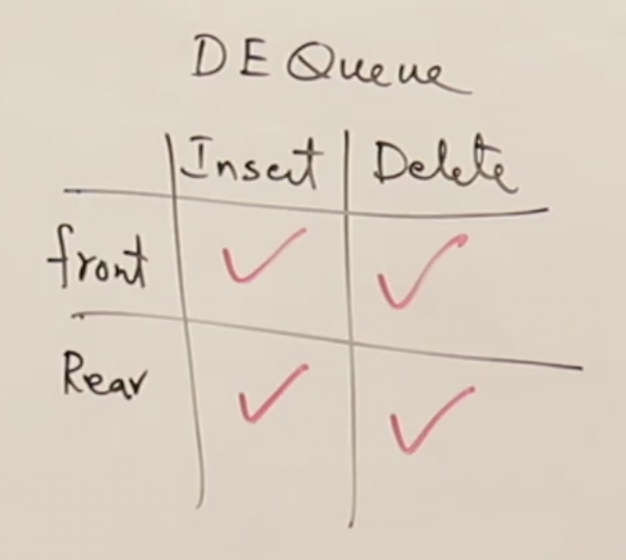 DEQueue
Insert Delete
front ✓ ✓
Rear ✓ ✓